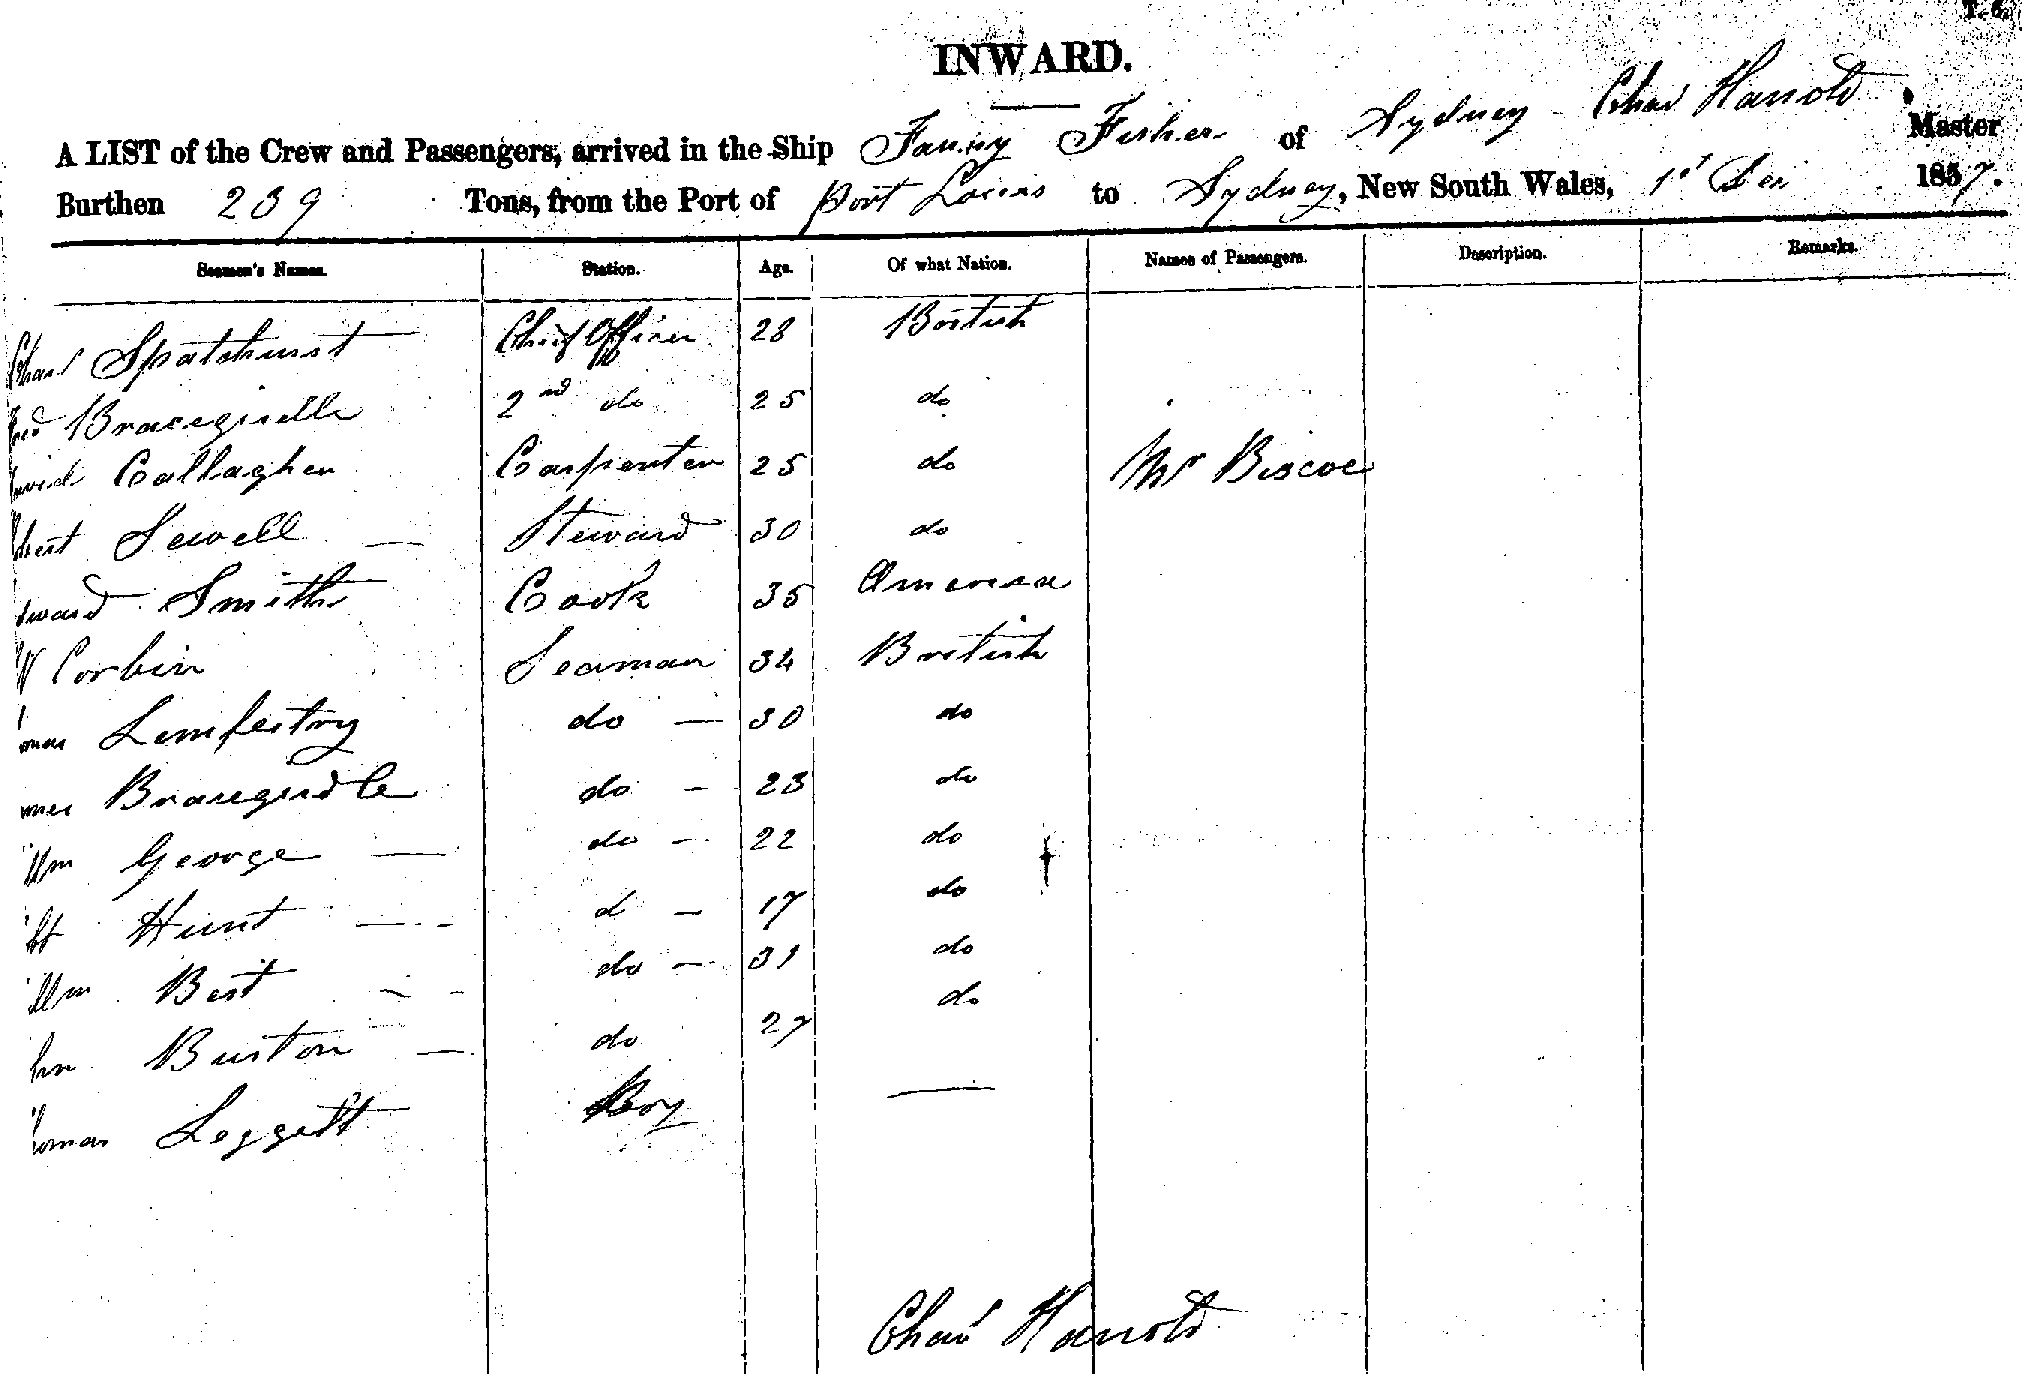 T. 6.
INWARD.
A LIST of the Crew and Passengers, arrived in the Ship Fanny Fisher of Sydney Chas Harrold Master
Burthen 239 Tons, from the Port of Port Louis to Sydney, New South Wales, 1st Dec 1857.
Seamen's Names. Station. Age. Of what Nation. Names of Passengers. Description. Remarks.
Chas Spatchurst Chief Officer 28 British
Bracegirdle 2nd do 25 do
Callaghan Carpenter 25 do Mr Biscoe
Sewell Steward 30 do
Smith Cook 35 America
W Corbin Seaman 34 British
do 30 do
Bracegirdle do 23 do
Willm George do 22 do
Hunt d 17 do
Willm Best do 31 do
Burton do 27 do
Thomas Leggett Boy
Chas Harrold